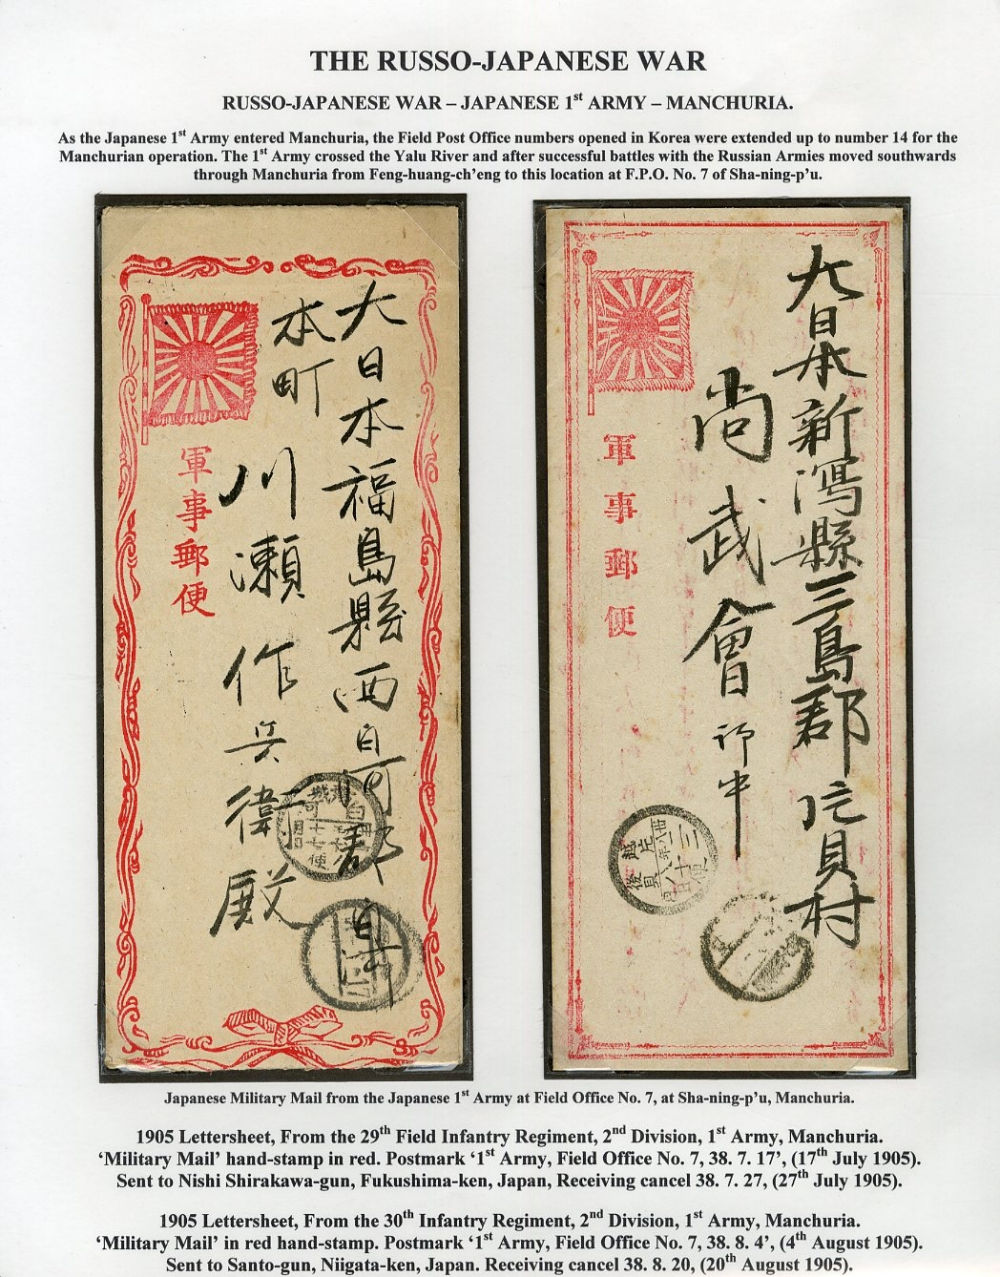 THE RUSSO-JAPANESE WAR
RUSSO-JAPANESE WAR – JAPANESE 1st ARMY – MANCHURIA.
As the Japanese 1st Army entered Manchuria, the Field Post Office numbers opened in Korea were extended up to number 14 for the
Manchurian operation. The 1st Army crossed the Yalu River and after successful battles with the Russian Armies moved southwards
through Manchuria from Feng-huang-ch'eng to this location at F.P.O. No. 7 of Sha-ning-p'u.
大日本福島縣西白河郡白河
本町
川瀬作兵衛殿
軍事郵便
大日本新潟縣三島郡片貝村
尚武會御中
軍事郵便
Japanese Military Mail from the Japanese 1st Army at Field Office No. 7, at Sha-ning-p'u, Manchuria.
1905 Lettersheet, From the 29th Field Infantry Regiment, 2nd Division, 1st Army, Manchuria.
'Military Mail' hand-stamp in red. Postmark '1st Army, Field Office No. 7, 38. 7. 17', (17th July 1905).
Sent to Nishi Shirakawa-gun, Fukushima-ken, Japan, Receiving cancel 38. 7. 27, (27th July 1905).
1905 Lettersheet, From the 30th Infantry Regiment, 2nd Division, 1st Army, Manchuria.
'Military Mail' in red hand-stamp. Postmark '1st Army, Field Office No. 7, 38. 8. 4', (4th August 1905).
Sent to Santo-gun, Niigata-ken, Japan. Receiving cancel 38. 8. 20, (20th August 1905).